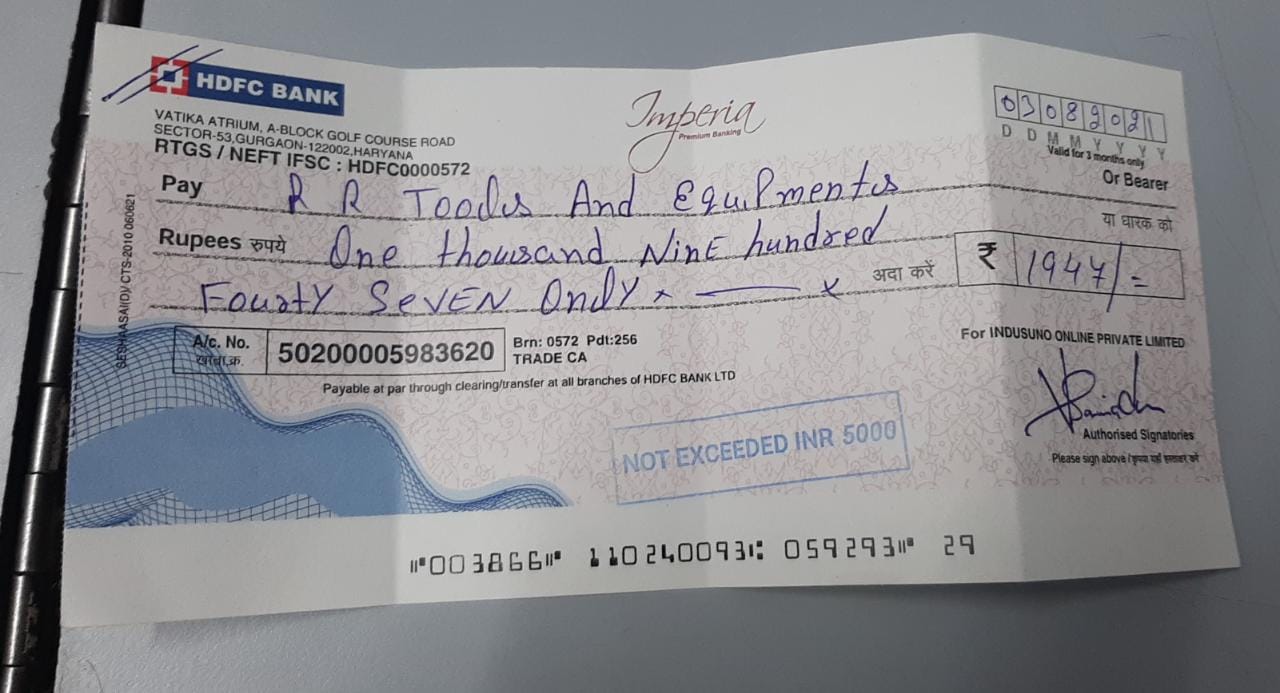 HDFC BANK
VATIKA ATRIUM, A-BLOCK GOLF COURSE ROAD
SECTOR-53,GURGAON-122002,HARYANA
RTGS / NEFT IFSC : HDFC0000572
Imperia
Premium Banking
03082021
D D M M Y Y Y Y
Valid for 3 months only
Pay R R Toods And EquiPments
Or Bearer
या धारक को
Rupees रुपये One thousand NiNE hundred
Fourty SeVEN OnlY x ——— x
अदा करें
₹ 1947/=
A/c. No.
खाता.क्र.
50200005983620
Brn: 0572 Pdt:256
TRADE CA
Payable at par through clearing/transfer at all branches of HDFC BANK LTD
For INDUSUNO ONLINE PRIVATE LIMITED
NOT EXCEEDED INR 5000
Authorised Signatories
Please sign above / कृपया यहाँ हस्ताक्षर करें
CTS-2010
⑈003866⑈ 110240093⑆ 059293⑈ 29